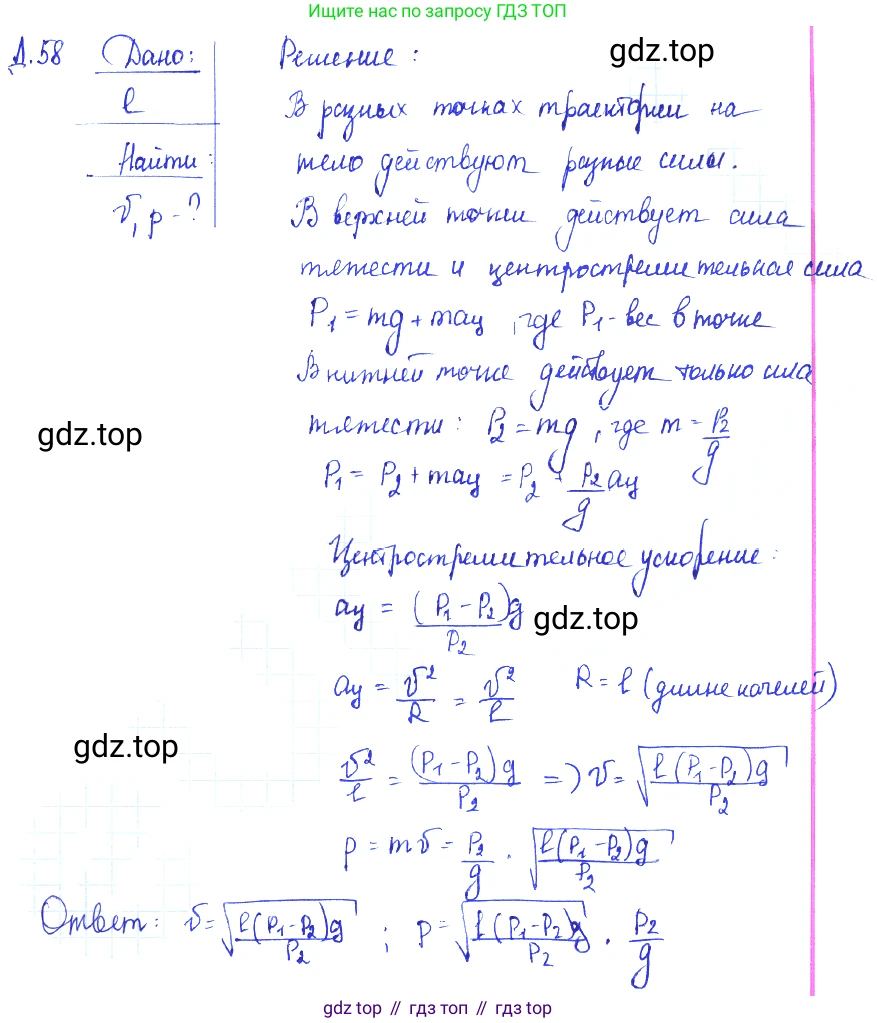 Ищите нас по запросу ГДЗ ТОП
Д.58 Дано: Решение: gdz.top
l В разных точках траектории на
Найти: тело действуют разные силы.
v, p - ? В верхней точки действует сила
тяжести и центростремительная сила
P₁ = mg + maц, где P₁ - вес в точке
В нижней точке действует только сила
тяжести: P₂ = mg, где m = P₂/g
gdz.top
P₁ = P₂ + maц = P₂ + P₂/g aц
Центростремительное ускорение:
aц = (P₁ - P₂)g/P₂ gdz.top
aц = v²/R = v²/l R = l (длине качелей)
gdz.top
v²/l = (P₁ - P₂)g/P₂ => v = √(l(P₁ - P₂)g/P₂)
p = mv = P₂/g · √(l(P₁ - P₂)g/P₂)
Ответ: v = √(l(P₁ - P₂)g/P₂) ; p = √(l(P₁ - P₂)g/P₂) · P₂/g
gdz top // гдз топ // gdz top